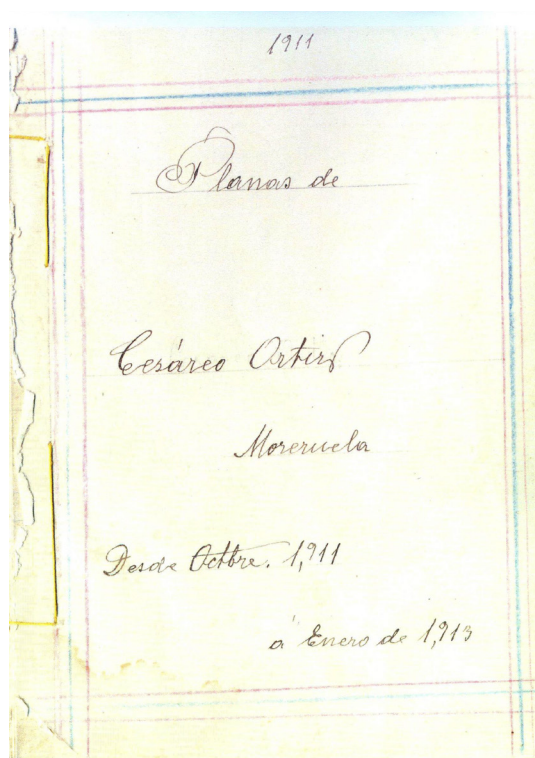 1911
Planas de
Cesáreo Ortiz
Moreruela
Desde Octbre. 1,911
á Enero de 1,913